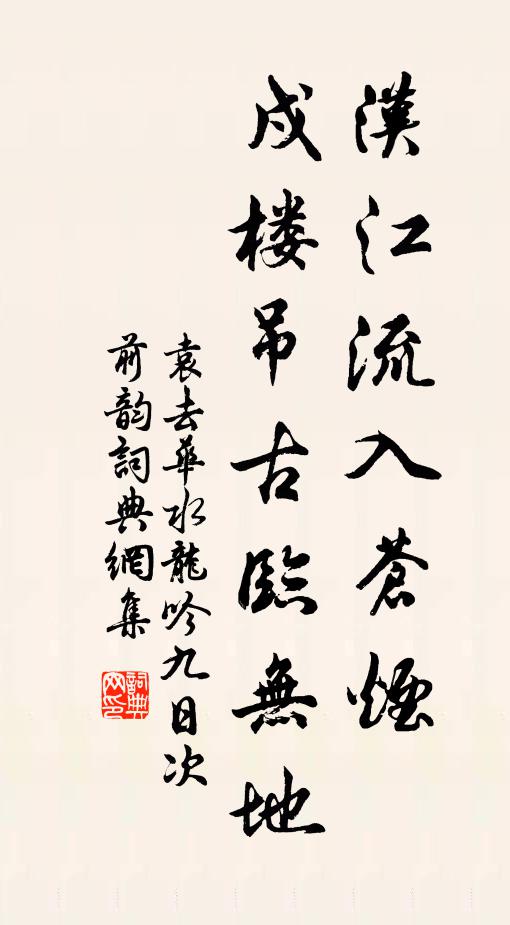 漢江流入蒼煙
戍樓吊古臨無地
袁去華水龍吟九日次
前韵詞典網集
詞典網印